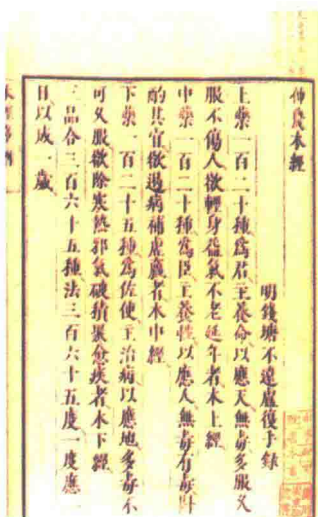 神農本經
明錢塘不遠盧復手錄
上藥一百二十種爲君主養命以應天無毒多服久
服不傷人欲輕身益氣不老延年者本上經
中藥一百二十種爲臣主養性以應人無毒有毒斟
酌其宜欲遏病補虛羸者本中經
下藥一百二十五種爲佐使主治病以應地多毒不
可久服欲除寒熱邪氣破積聚愈疾者本下經
三品合三百六十五種法三百六十五度一度應一
日以成一歲